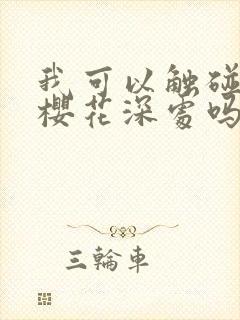 我可以触碰
樱花深处吗
三輪車